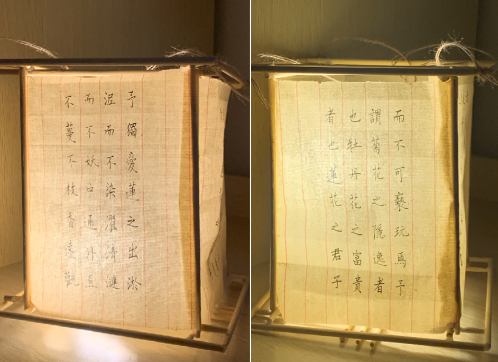 予獨愛蓮之出淤
泥而不染濯清漣
而不妖中通外直
不蔓不枝香遠觀
而不可褻玩焉予
謂菊花之隱逸者
也牡丹花之富貴
者也蓮花之君子